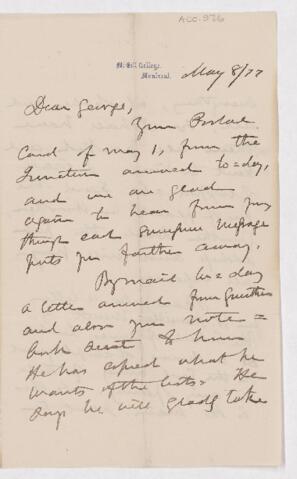 ACC. 976
McGill College,
Montreal.
May 8/77
Dear George,
Your Postal
Card of May 1, from the
Junction arrived to=day,
and we are glad
again to hear from you
though each successive message
puts you farther away.
By mail to=day
a letter arrived from Gunther
and also your note=
book sent to him
He has copied what he
wants of the lists. He
says he will gladly take